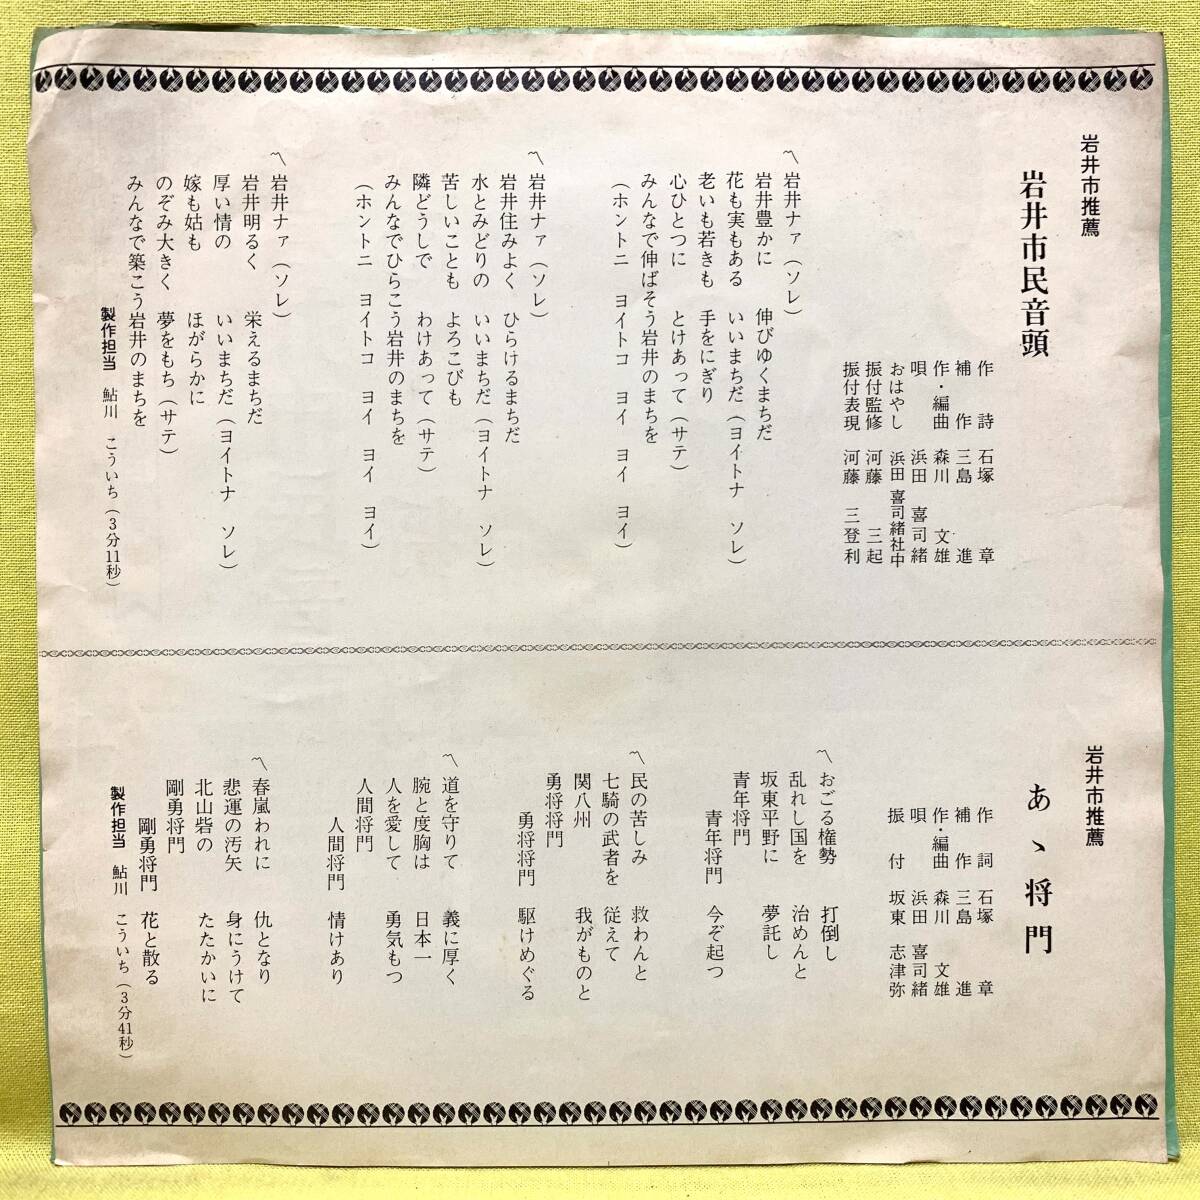 岩井市推薦
岩井市民音頭
作詩 石塚 章
補作 三島 進
作・編曲 森川 文雄
唄 浜田 喜司緒
おはやし 浜田 喜司緒社中
振付監修 河藤 三起
振付表現 河藤 三登利
〽岩井ナァ（ソレ）
岩井豊かに 伸びゆくまちだ
花も実もある いいまちだ（ヨイトナ ソレ）
老いも若きも 手をにぎり
心ひとつに とけあって（サテ）
みんなで伸ばそう岩井のまちを
（ホントニ ヨイトコ ヨイ ヨイ ヨイ）
〽岩井ナァ（ソレ）
岩井住みよく ひらけるまちだ
水とみどりの いいまちだ（ヨイトナ ソレ）
苦しいことも よろこびも
隣どうしで わけあって（サテ）
みんなでひらこう岩井のまちを
（ホントニ ヨイトコ ヨイ ヨイ ヨイ）
〽岩井ナァ（ソレ）
岩井明るく 栄えるまちだ
厚い情の いいまちだ（ヨイトナ ソレ）
嫁も姑も ほがらかに
のぞみ大きく 夢をもち（サテ）
みんなで築こう岩井のまちを
製作担当 鮎川 こういち（3分11秒）
岩井市推薦
あゝ将門
作詞 石塚 章
補作 三島 進
作・編曲 森川 文雄
唄 浜田 喜司緒
振付 坂東 志津弥
〽おごる権勢 打倒し
乱れし国を 治めんと
坂東平野に 夢託し
青年将門
青年将門 今ぞ起つ
〽民の苦しみ 救わんと
七騎の武者を 従えて
関八州 我がものと
勇将将門
勇将将門 駆けめぐる
〽道を守りて 義に厚く
腕と度胸は 日本一
人を愛して 勇気もつ
人間将門
人間将門 情けあり
〽春嵐われに 仇となり
悲運の汚矢 身にうけて
北山砦の たたかいに
剛勇将門
剛勇将門 花と散る
製作担当 鮎川 こういち（3分41秒）